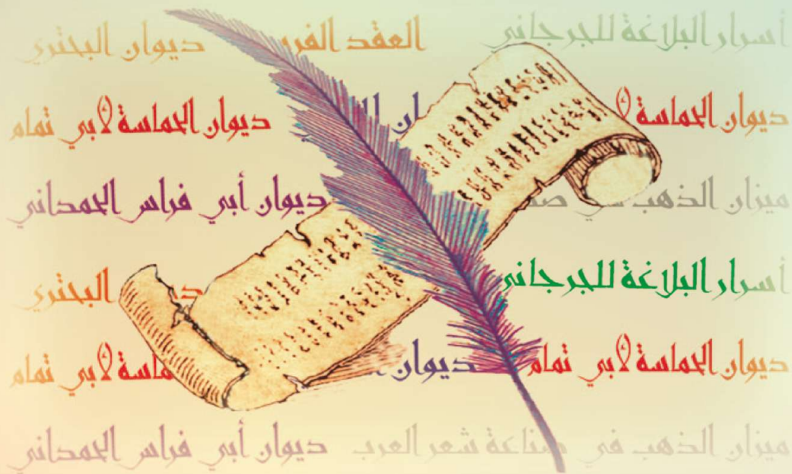 أسرار البلاغة للجرجاني العقد ديوان البحتري
ديوان الحماسة لأبي تمام
ميزان الذهب ديوان أبي فراس الحمداني
أسرار البلاغة للجرجاني البحتري
ديوان الحماسة لأبي تمام ديوان لأبي تمام
ميزان الذهب في صناعة شعر العرب ديوان أبي فراس الحمداني